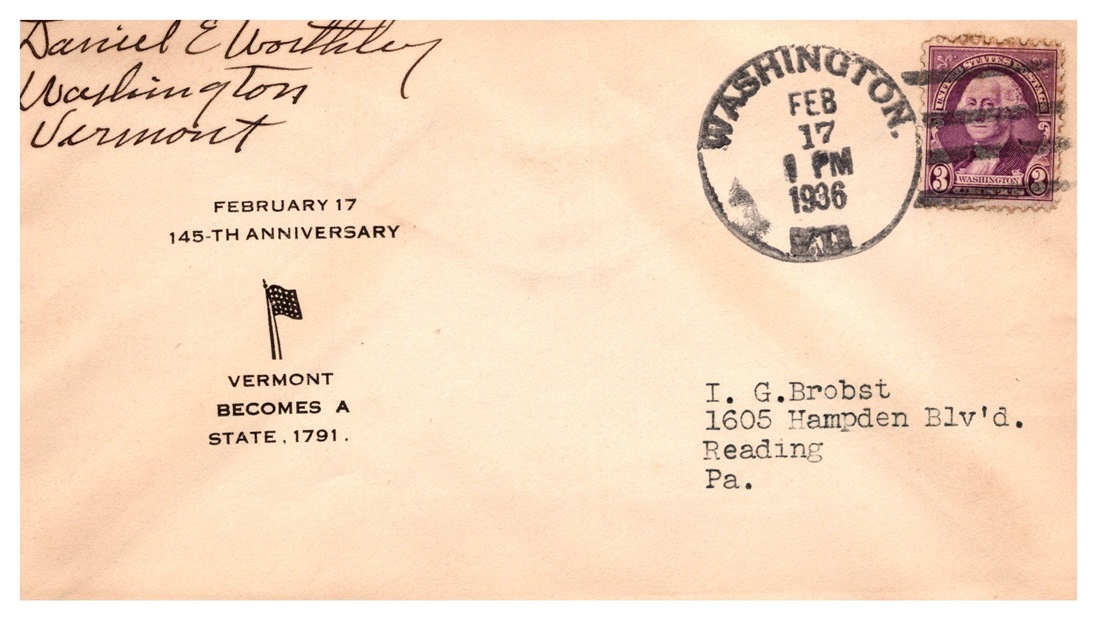 Daniel E Worthley
Washington
Vermont
WASHINGTON.
FEB
17
1 PM
1936
UNITED STATES POSTAGE
3 WASHINGTON 3
FEBRUARY 17
145-TH ANNIVERSARY
VERMONT
BECOMES A
STATE, 1791.
I. G.Brobst
1605 Hampden Blv'd.
Reading
Pa.